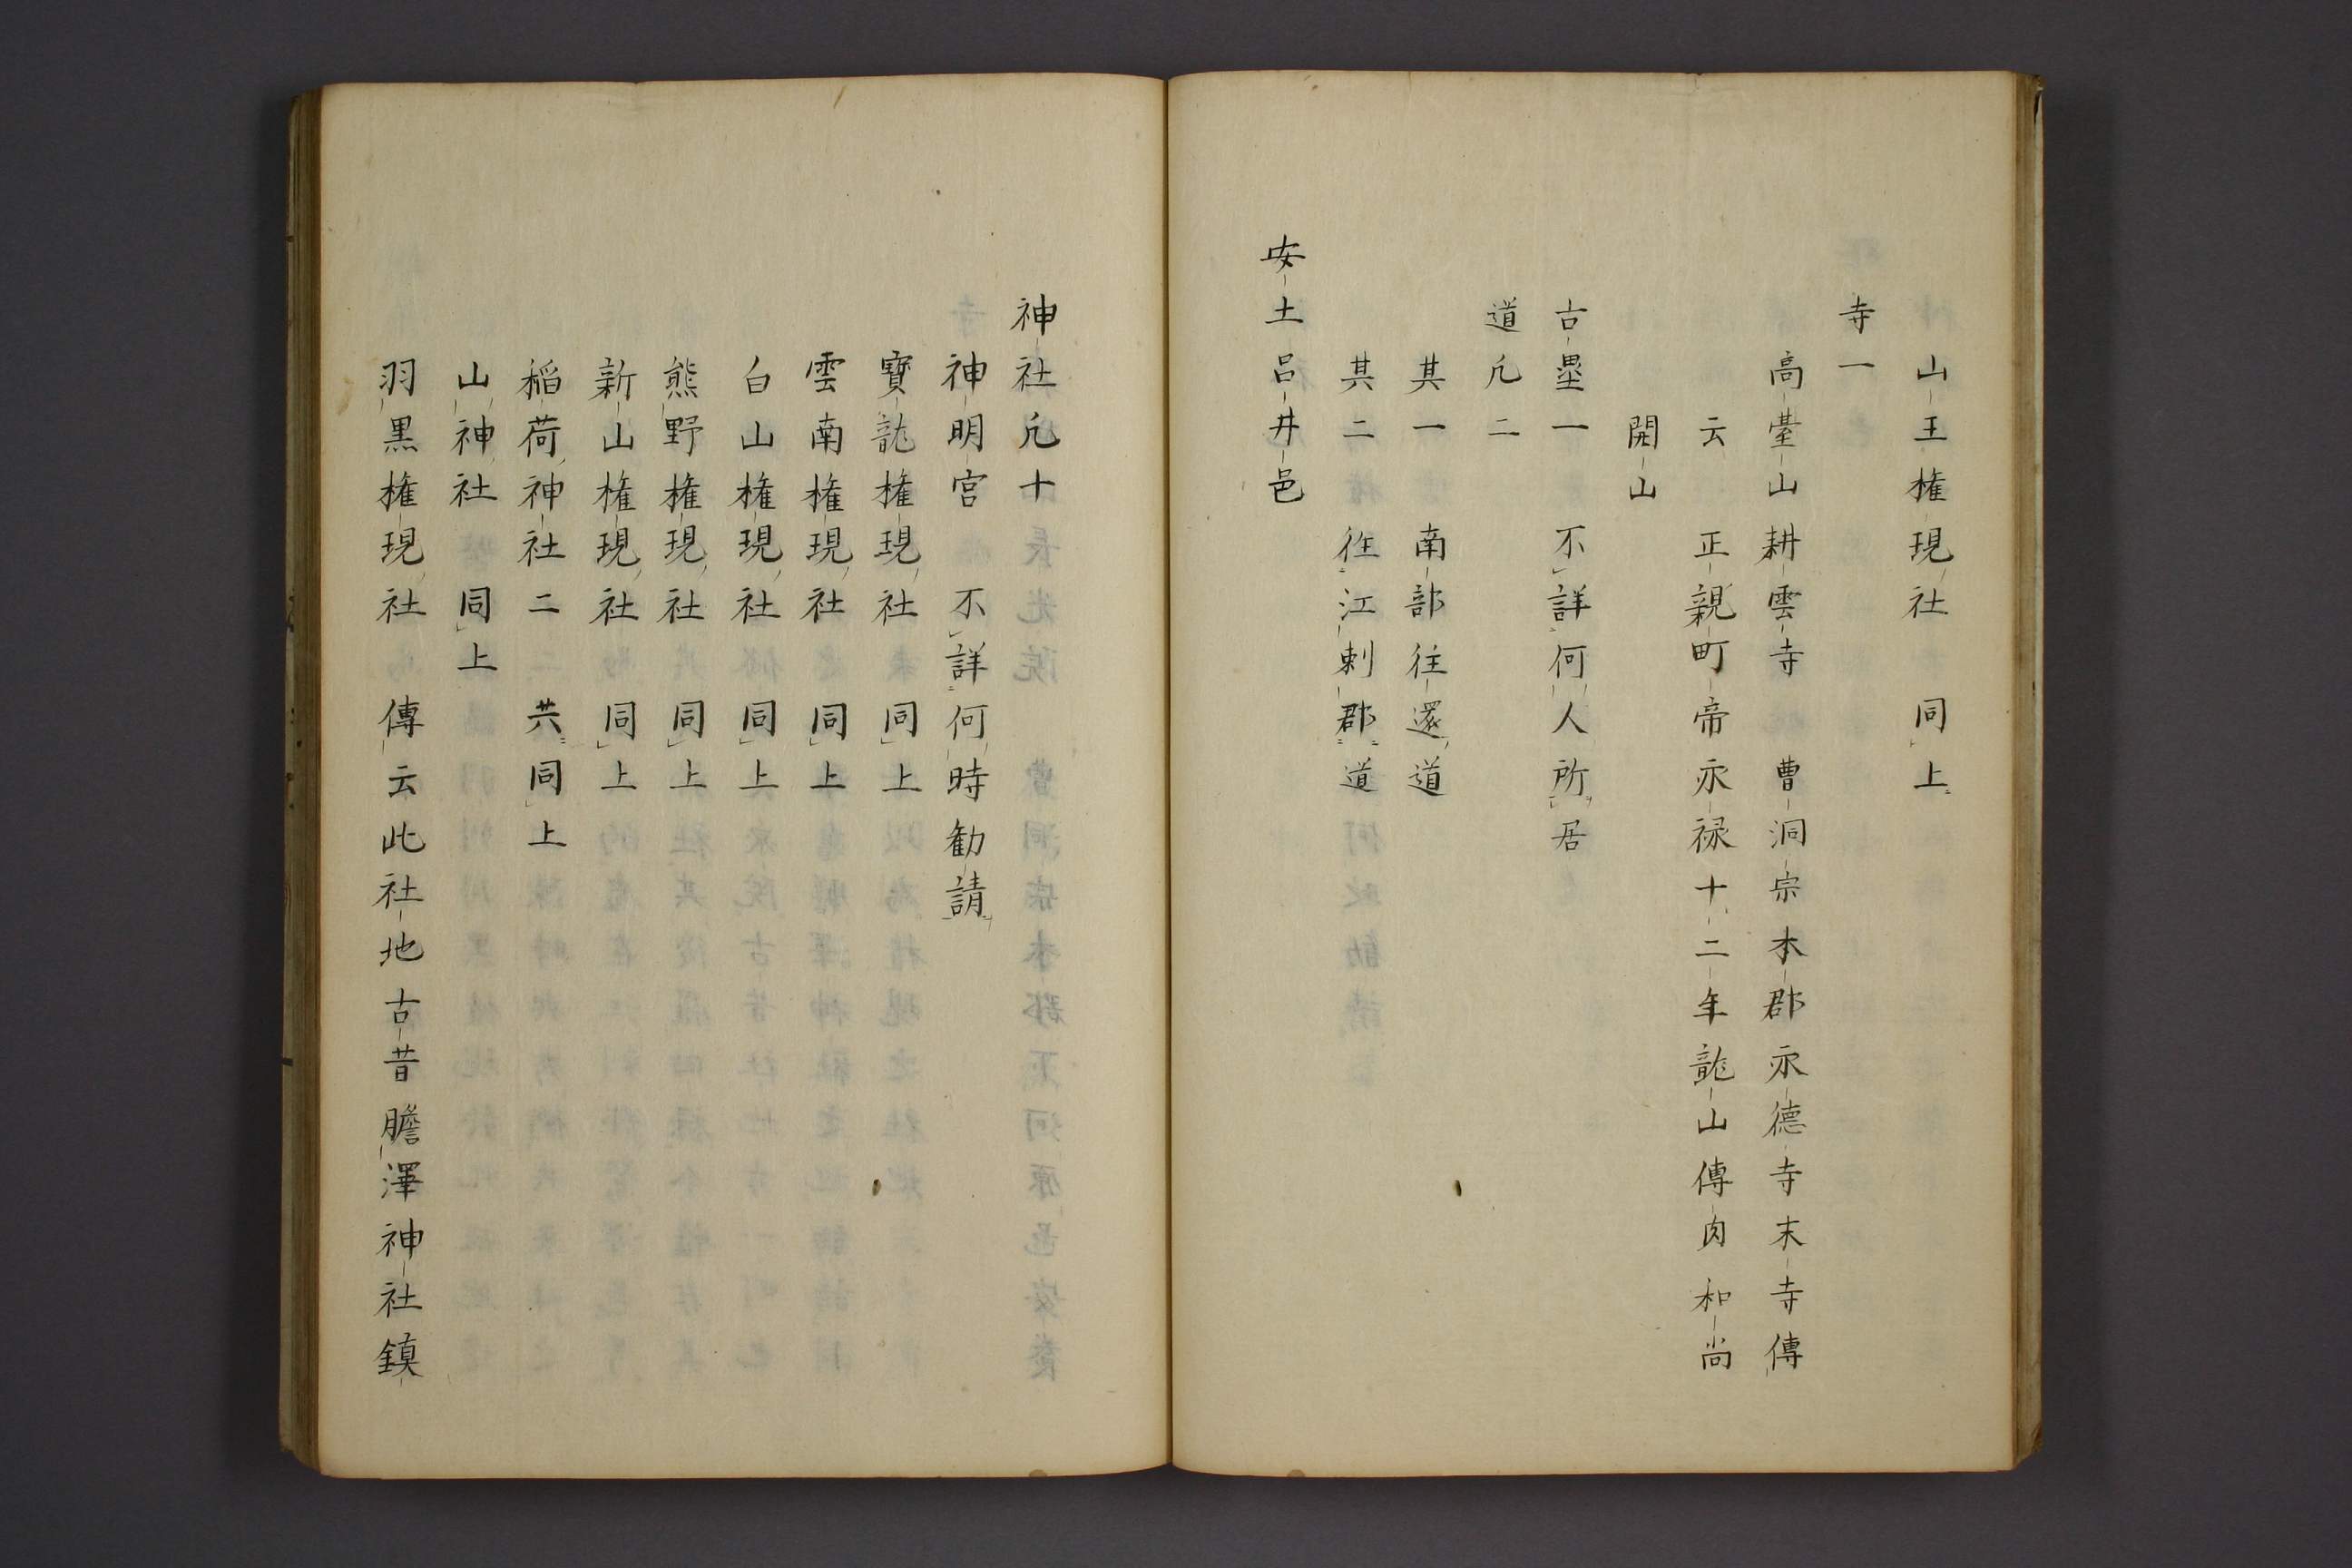 山王権現社　同上
寺一
高臺山耕雲寺　曹洞宗本郡永德寺末寺傳
云　正親町帝永禄十二年龍山傳肉和尚
開山
古壘一　不詳何人所居
道凡二
其一　南部往還道
其二　往江刺郡道
安土呂井邑
神社凡十
神明宮　不詳何時勧請
寶龍権現社　同上
雲南権現社　同上
白山権現社　同上
熊野権現社　同上
新山権現社　同上
稲荷神社二　共同上
山神社　同上
羽黒権現社　傳云此社地古昔膽澤神社鎮